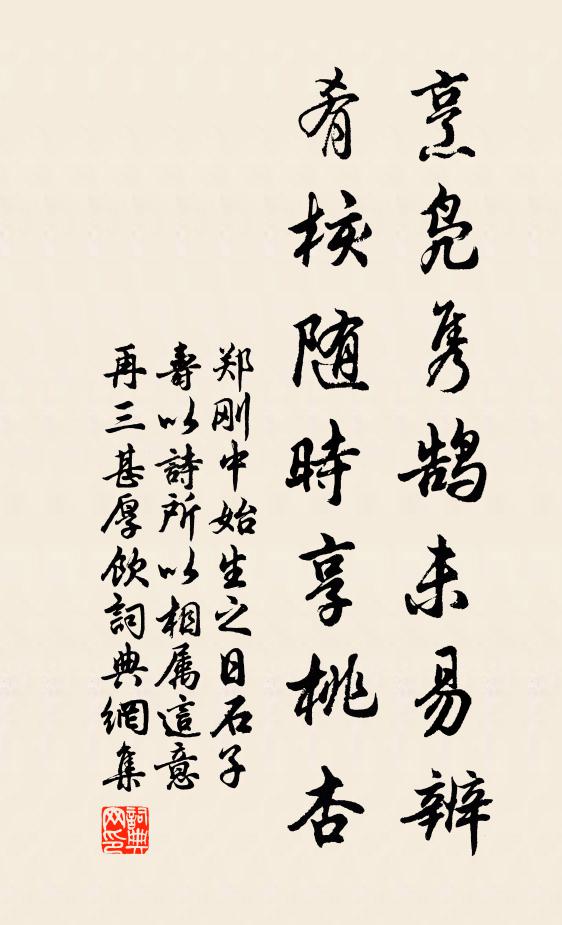 烹凫隽鹄未易辨
肴核随時享桃杏
郑刚中始生之日石子
壽以詩所以相属這意
再三甚厚飲詞典網集
詞典網印